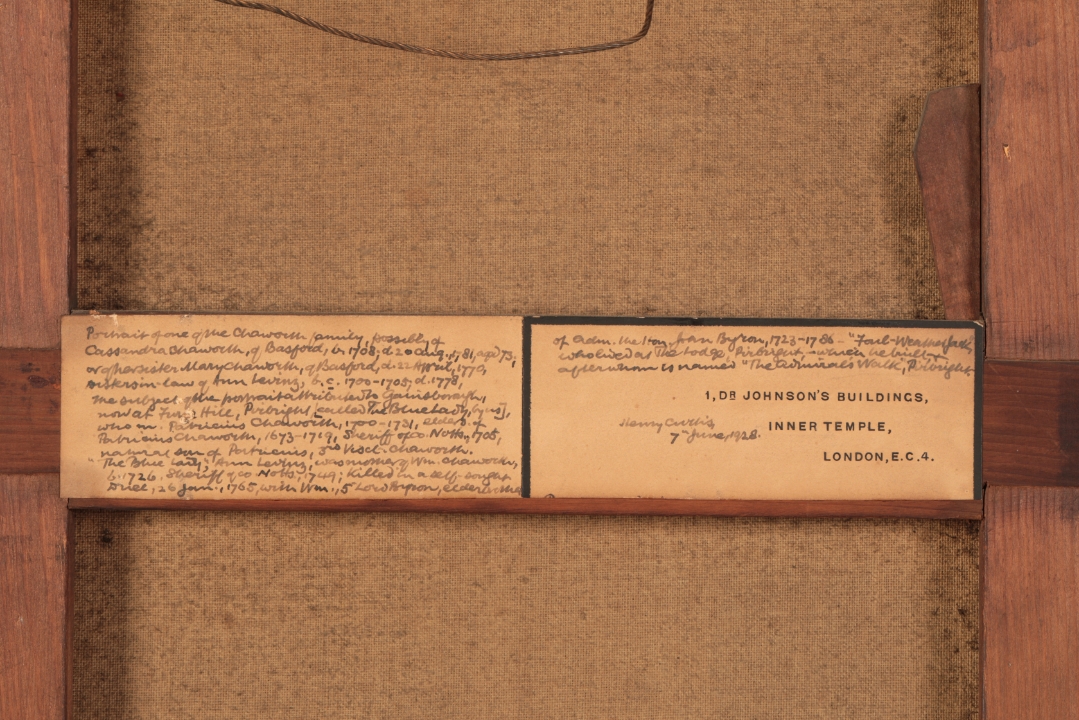 Portrait of one of the Chaworth family, possibly of
Cassandra Chaworth, of Basford, b. 1708, d. 20 Aug., 1781, aged 73,
or of her sister Mary Chaworth, of Basford, d. 22 April, 1770,
sisters-in-law of Ann Levinz, b. c. 1700-1705, d. 1778,
the subject of the portrait attributed to Gainsborough,
now at Furze Hill, Pirbright, [called The Blue Lady, by us],
who m. Patricius Chaworth, 1700-1731, elder s. of
Patricius Chaworth, 1673-1719, Sheriff of co. Notts., 1705,
natural son of Patricius, 3rd Visct. Chaworth.
"The Blue Lady," Ann Levinz, was mother of Wm. Chaworth,
b. 1726. Sheriff of co. Notts., 1749; killed in a self-sought
Duel, 26 Jan., 1765, with Wm., 5 Lord Byron, elder brother
of Adm. the Hon. John Byron, 1723-1786 - "Foul-Weather Jack,"
who lived at The Lodge, Pirbright - which he built -
after whom is named "The Admiral's Walk", Pirbright.
1, DR JOHNSON'S BUILDINGS,
Henry Curtis
INNER TEMPLE,
7th June, 1928.
LONDON, E.C.4.